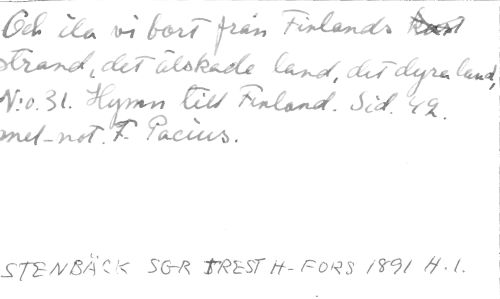 Och ila vi bort från Finlands
strand, det älskade land, det dyra land,
N:o. 31. Hymn till Finland. Sid. 42.
mel-not. F. Pacius.
STENBÄCK SGR H-FORS 1891 H.1.